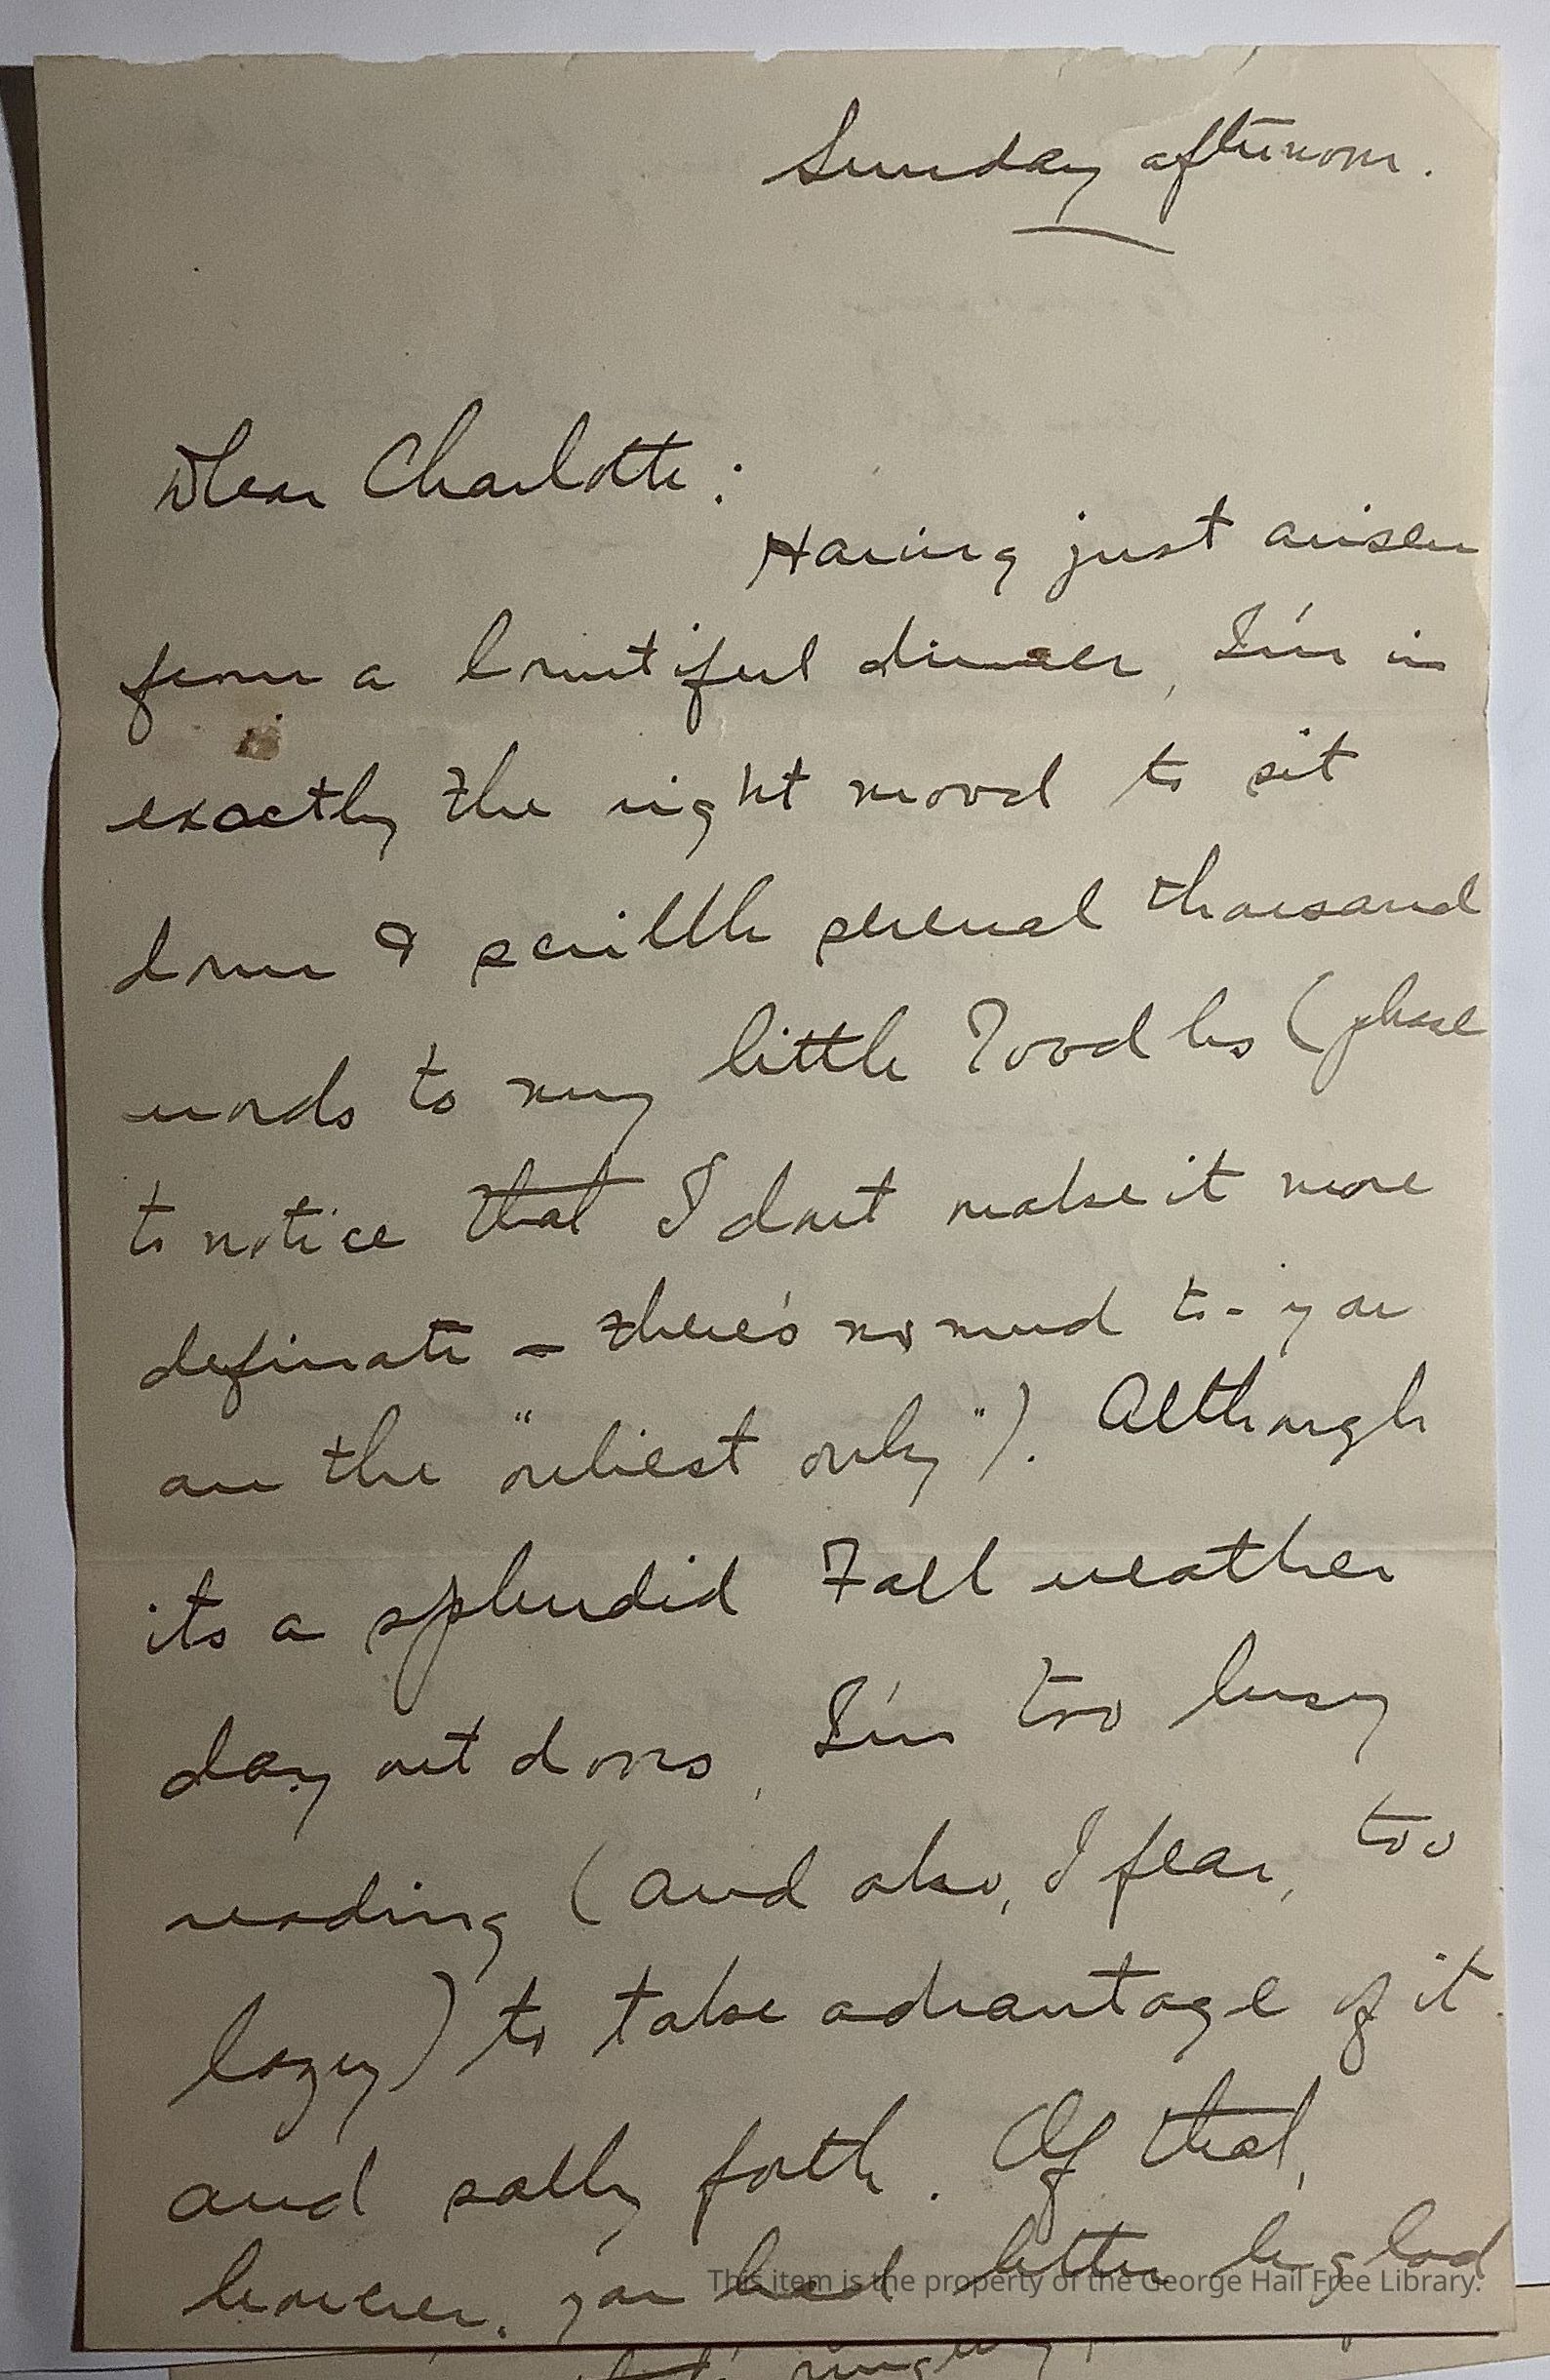 Sunday afternoon.
Dear Charlotte:
Having just arisen
from a bountiful dinner, I'm in
exactly the right mood to sit
down & scribble several thousand
words to my little Toodles (please
to notice that I don't make it more
definate - there's no need to - you
are the "onliest only"). Although
its a splendid Fall weather
day out doors, I'm too busy
reading (and also, I fear, too
lazy) to take advantage of it
and sally forth. Of that,
however, you had better be glad
This item is the property of the George Hail Free Library.